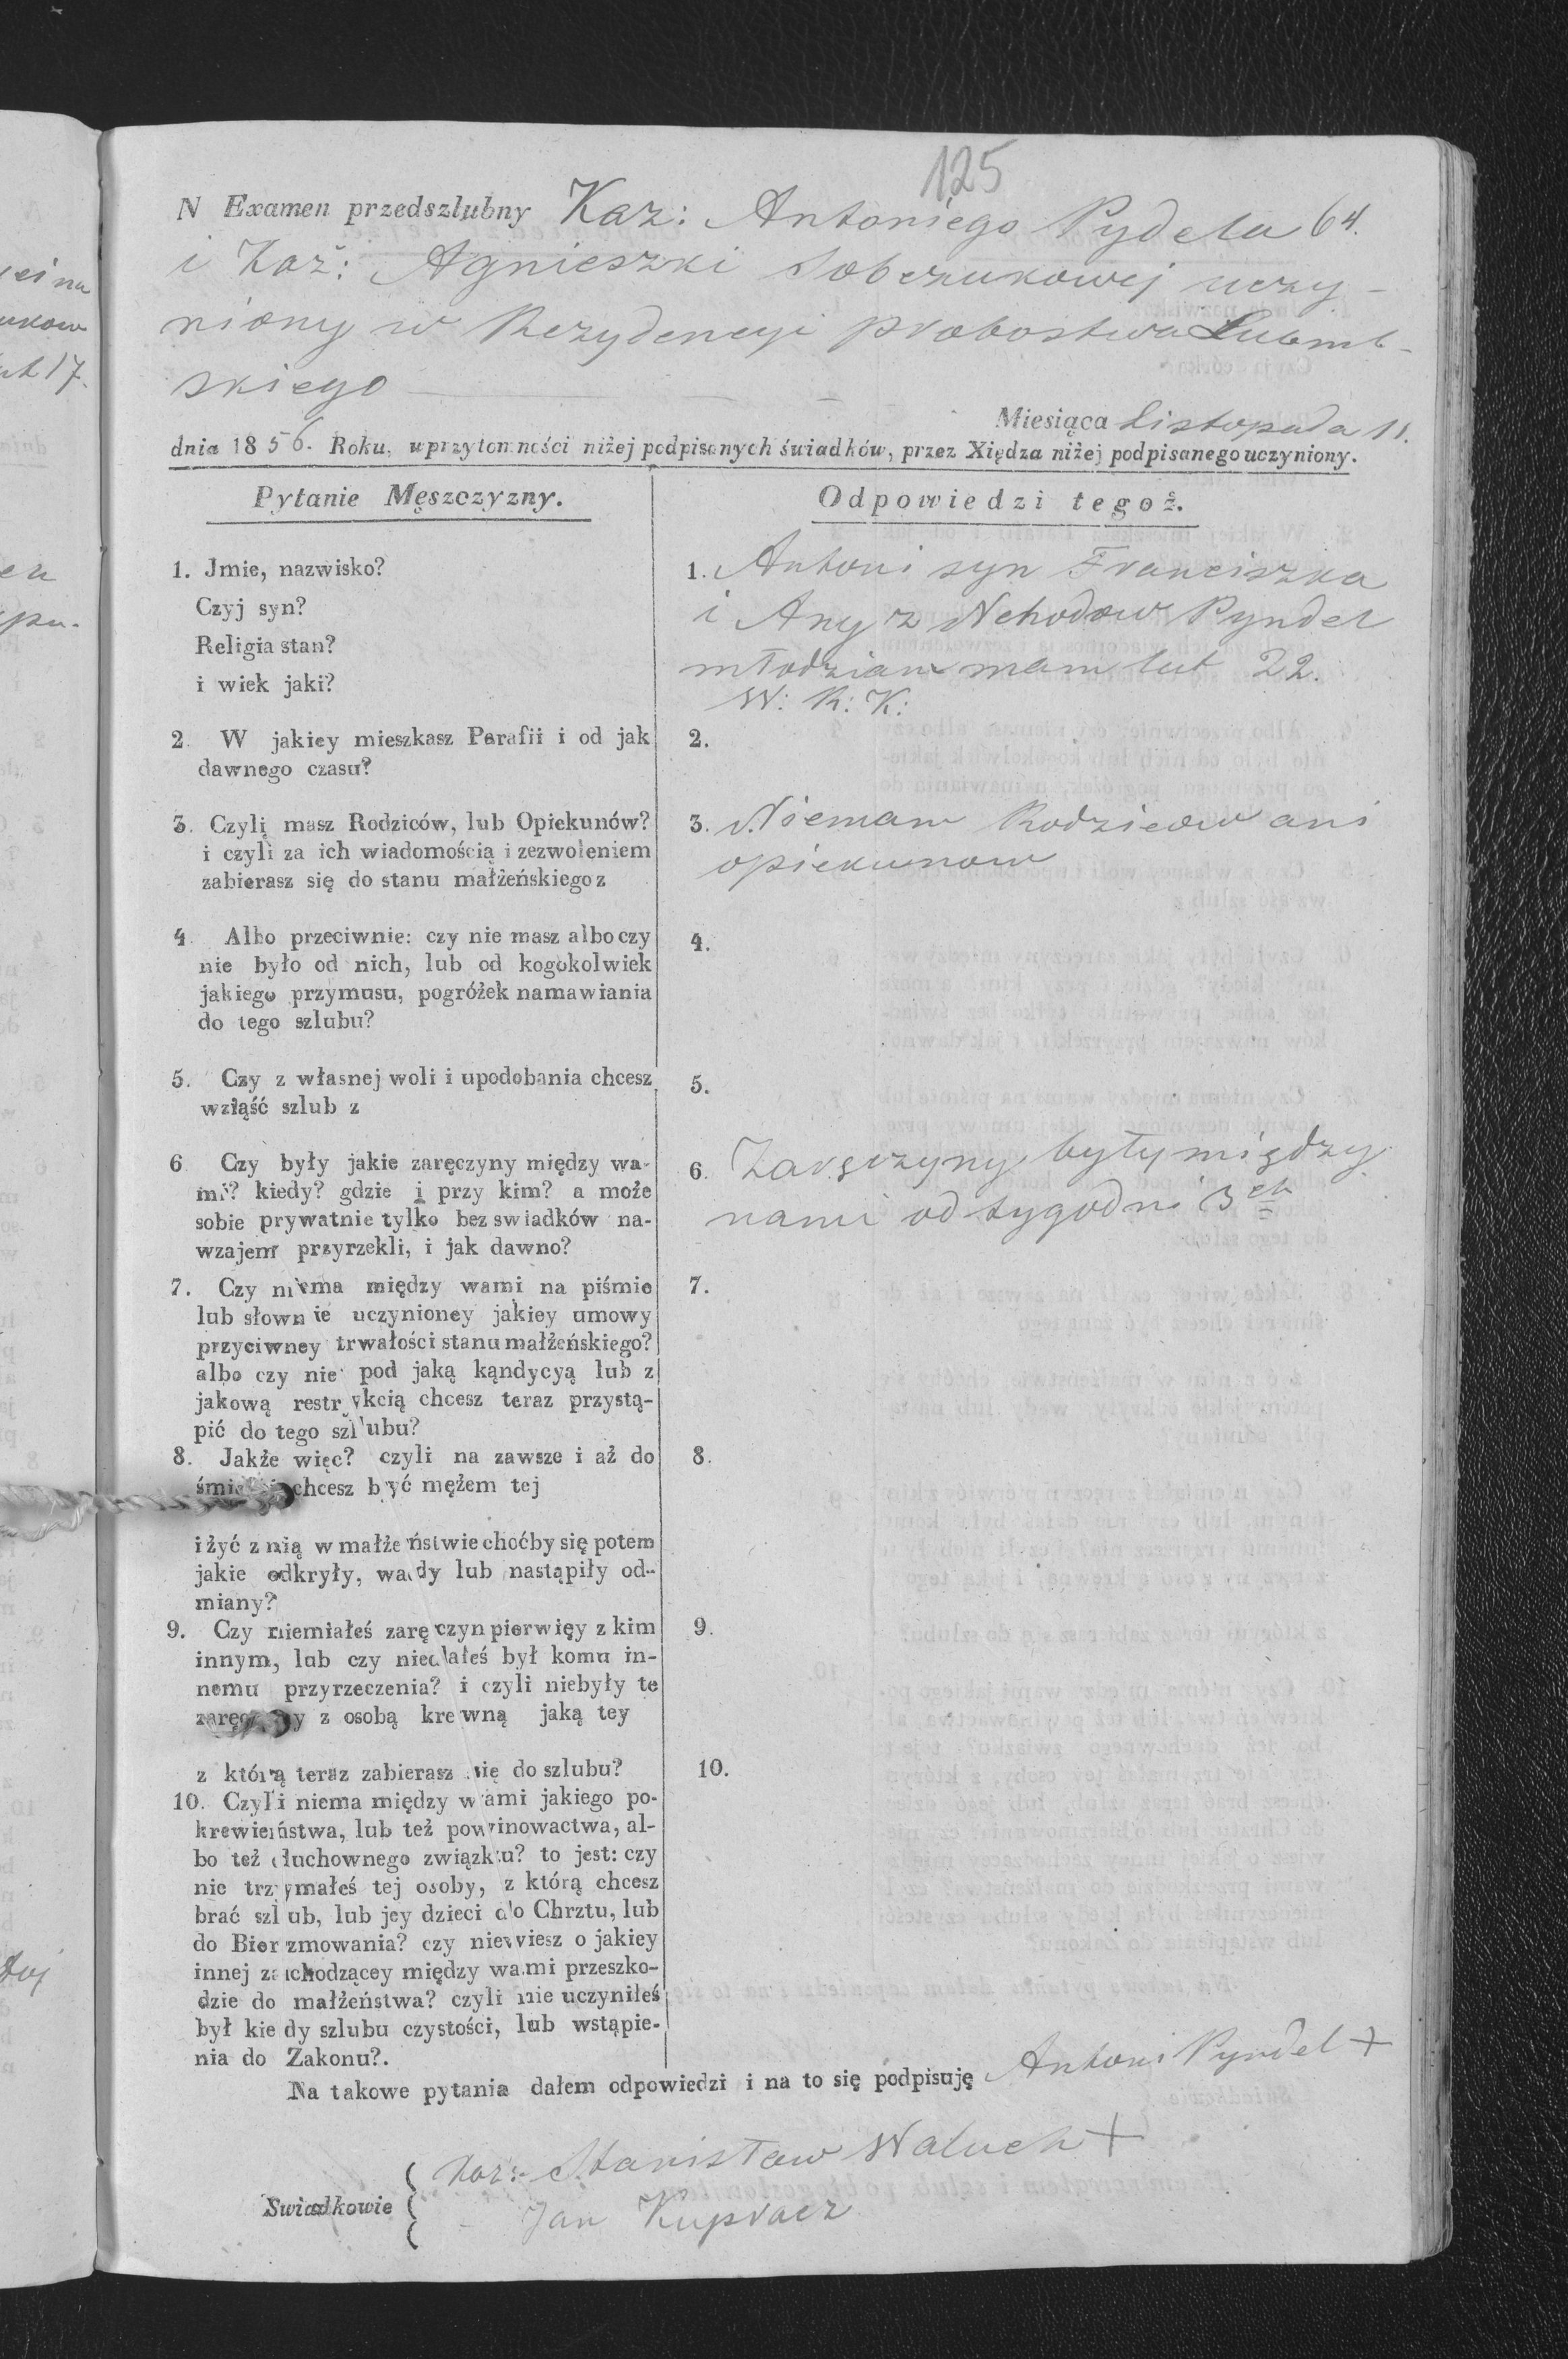 125
N Examen przedszlubny Kaz: Antoniego Pydela 64.
i Kaź: Agnieszki Sobczukowej uczy-
niony w Rezydencyi probostwa
skiego
Miesiąca Listopada 11.
dnia 1856. Roku, w przytomności niżej podpisanych świadków, przez Xiędza niżej podpisanego uczyniony.
Pytanie Męszczyzny.
Odpowiedzi tegoż.
1. Jmie, nazwisko?
Czyj syn?
Religia stan?
i wiek jaki?
1. Antoni syn Franciszka
i Any z Nehodow Pyndel
młodzian mam lat 22.
W: R: K:
2. W jakiey mieszkasz Parafii i od jak
dawnego czasu?
2.
3. Czylį masz Rodziców, lub Opiekunów?
i czyli za ich wiadomością i zezwoleniem
zabierasz się do stanu małżeńskiego z
3. Niemam Rodzicow ani
opiekunow
4. Albo przeciwnie: czy nie masz albo czy
nie było od nich, lub od kogokolwiek
jakiego przymusu, pogróżek namawiania
do tego szlubu?
4.
5. Czy z własnej woli i upodobania chcesz
wziąść szlub z
5.
6 Czy były jakie zaręczyny między wa-
mi? kiedy? gdzie i przy kim? a może
sobie prywatnie tylko bez swiadków na-
wzajem przyrzekli, i jak dawno?
6. Zaręczyny były między
nami od tygodni 3ch
7. Czy niema między wami na piśmie
lub słownie uczynioney jakiey umowy
przyciwney trwałości stanu małżeńskiego?
albo czy nie pod jaką kąndycyą lub z
jakową restrykcią chcesz teraz przystą-
pić do tego szlubu?
7.
8. Jakże więc? czyli na zawsze i aż do
chcesz być mężem tej
i żyć z nią w małżeństwie choćby się potem
jakie odkryły, wady lub nastąpiły od-
miany?
8.
9. Czy niemiałeś zaręczyn pierwięy z kim
innym, lub czy niedałeś był komu in-
nemu przyrzeczenia? i czyli niebyły te
z osobą krewną jaką tey
z którą teraz zabierasz się do szlubu?
9.
10. Czyli niema między wami jakiego po-
krewieństwa, lub też powinowactwa, al-
bo też duchownego związku? to jest: czy
nie trzymałeś tej osoby, z którą chcesz
brać szlub, lub jey dzieci do Chrztu, lub
do Bierzmowania? czy niewiesz o jakiey
innej zachodzącey między wami przeszko-
dzie do małżeństwa? czyli nie uczyniłeś
był kiedy szlubu czystości, lub wstąpie-
nia do Zakonu?.
10.
Na takowe pytania dałem odpowiedzi i na to się podpisuję Antoni Pyndel +
Swiadkowie
Kaz: Stanisław Waluch +
- Jan Kupracz